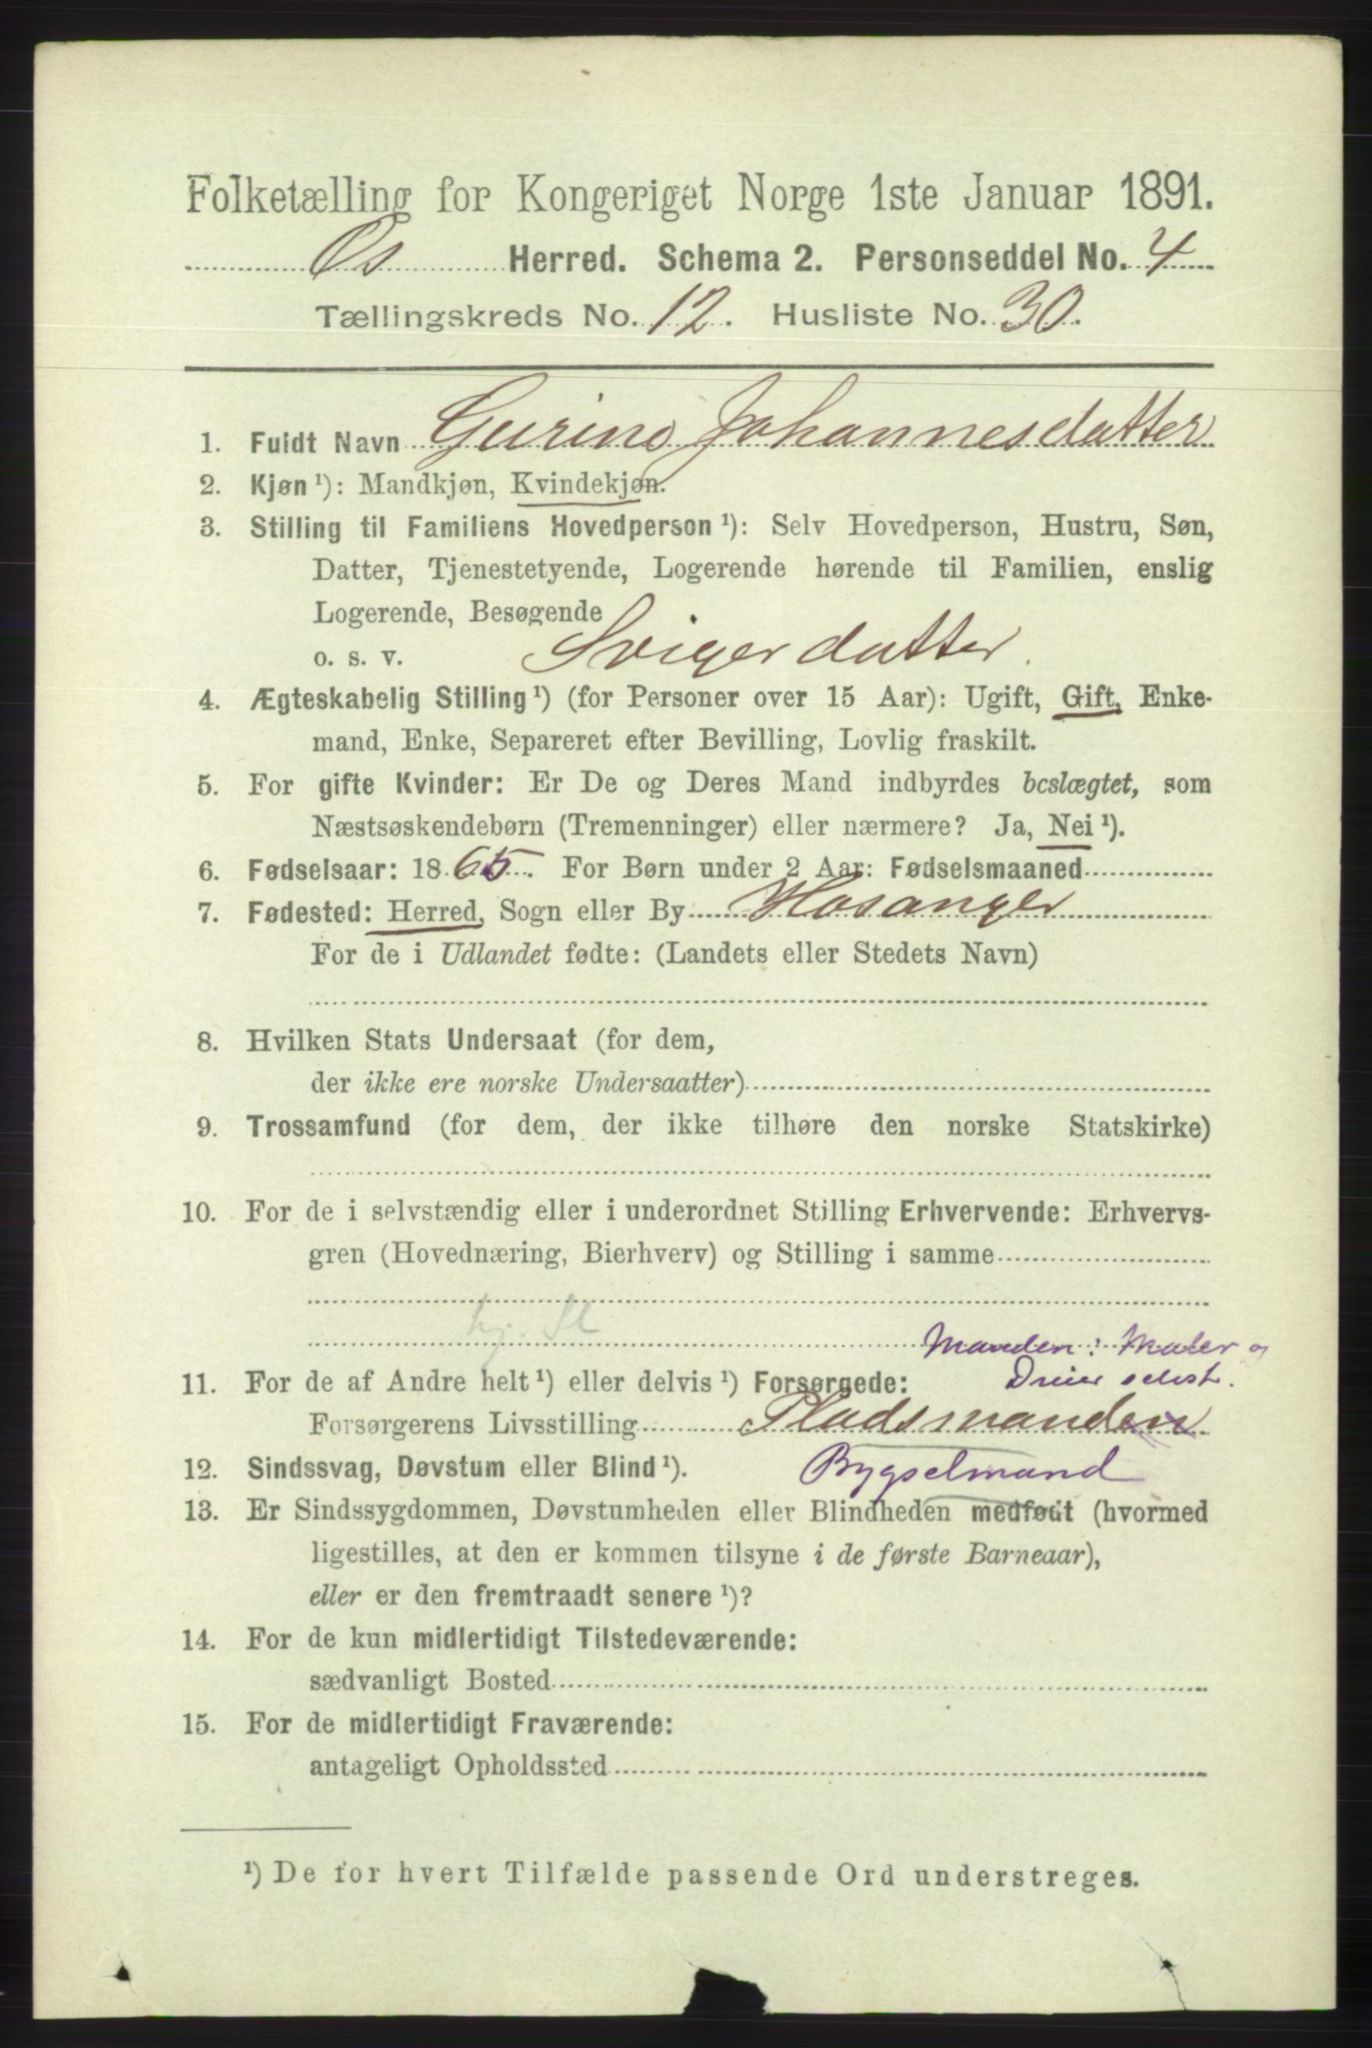 Folketælling for Kongeriget Norge 1ste Januar 1891.
Os Herred. Schema 2. Personseddel No. 4
Tællingskreds No. 12. Husliste No. 30.
1. Fuldt Navn Gurine Johannesdatter
2. Kjøn ¹): Mandkjøn, Kvindekjøn.
3. Stilling til Familiens Hovedperson ¹): Selv Hovedperson, Hustru, Søn,
Datter, Tjenestetyende, Logerende hørende til Familien, enslig
Logerende, Besøgende
o. s. v. Svigerdatter.
4. Ægteskabelig Stilling ¹) (for Personer over 15 Aar): Ugift, Gift, Enke-
mand, Enke, Separeret efter Bevilling, Lovlig fraskilt.
5. For gifte Kvinder: Er De og Deres Mand indbyrdes beslægtet, som
Næstsøskendebørn (Tremenninger) eller nærmere? Ja, Nei ¹).
6. Fødselsaar: 1865. For Børn under 2 Aar: Fødselsmaaned
7. Fødested: Herred, Sogn eller By Hosanger
For de i Udlandet fødte: (Landets eller Stedets Navn)
8. Hvilken Stats Undersaat (for dem,
der ikke ere norske Undersaatter)
9. Trossamfund (for dem, der ikke tilhøre den norske Statskirke)
10. For de i selvstændig eller i underordnet Stilling Erhvervende: Erhvervs-
gren (Hovednæring, Bierhverv) og Stilling i samme
hj. St
Manden: Maler og
11. For de af Andre helt ¹) eller delvis ¹) Forsørgede: Dreier selvst.
Forsørgerens Livsstilling Pladsmanden.
12. Sindssvag, Døvstum eller Blind ¹). Bygselmand
13. Er Sindssygdommen, Døvstumheden eller Blindheden medfødt (hvormed
ligestilles, at den er kommen tilsyne i de første Barneaar),
eller er den fremtraadt senere ¹)?
14. For de kun midlertidigt Tilstedeværende:
sædvanligt Bosted
15. For de midlertidigt Fraværende:
antageligt Opholdssted
¹) De for hvert Tilfælde passende Ord understreges.